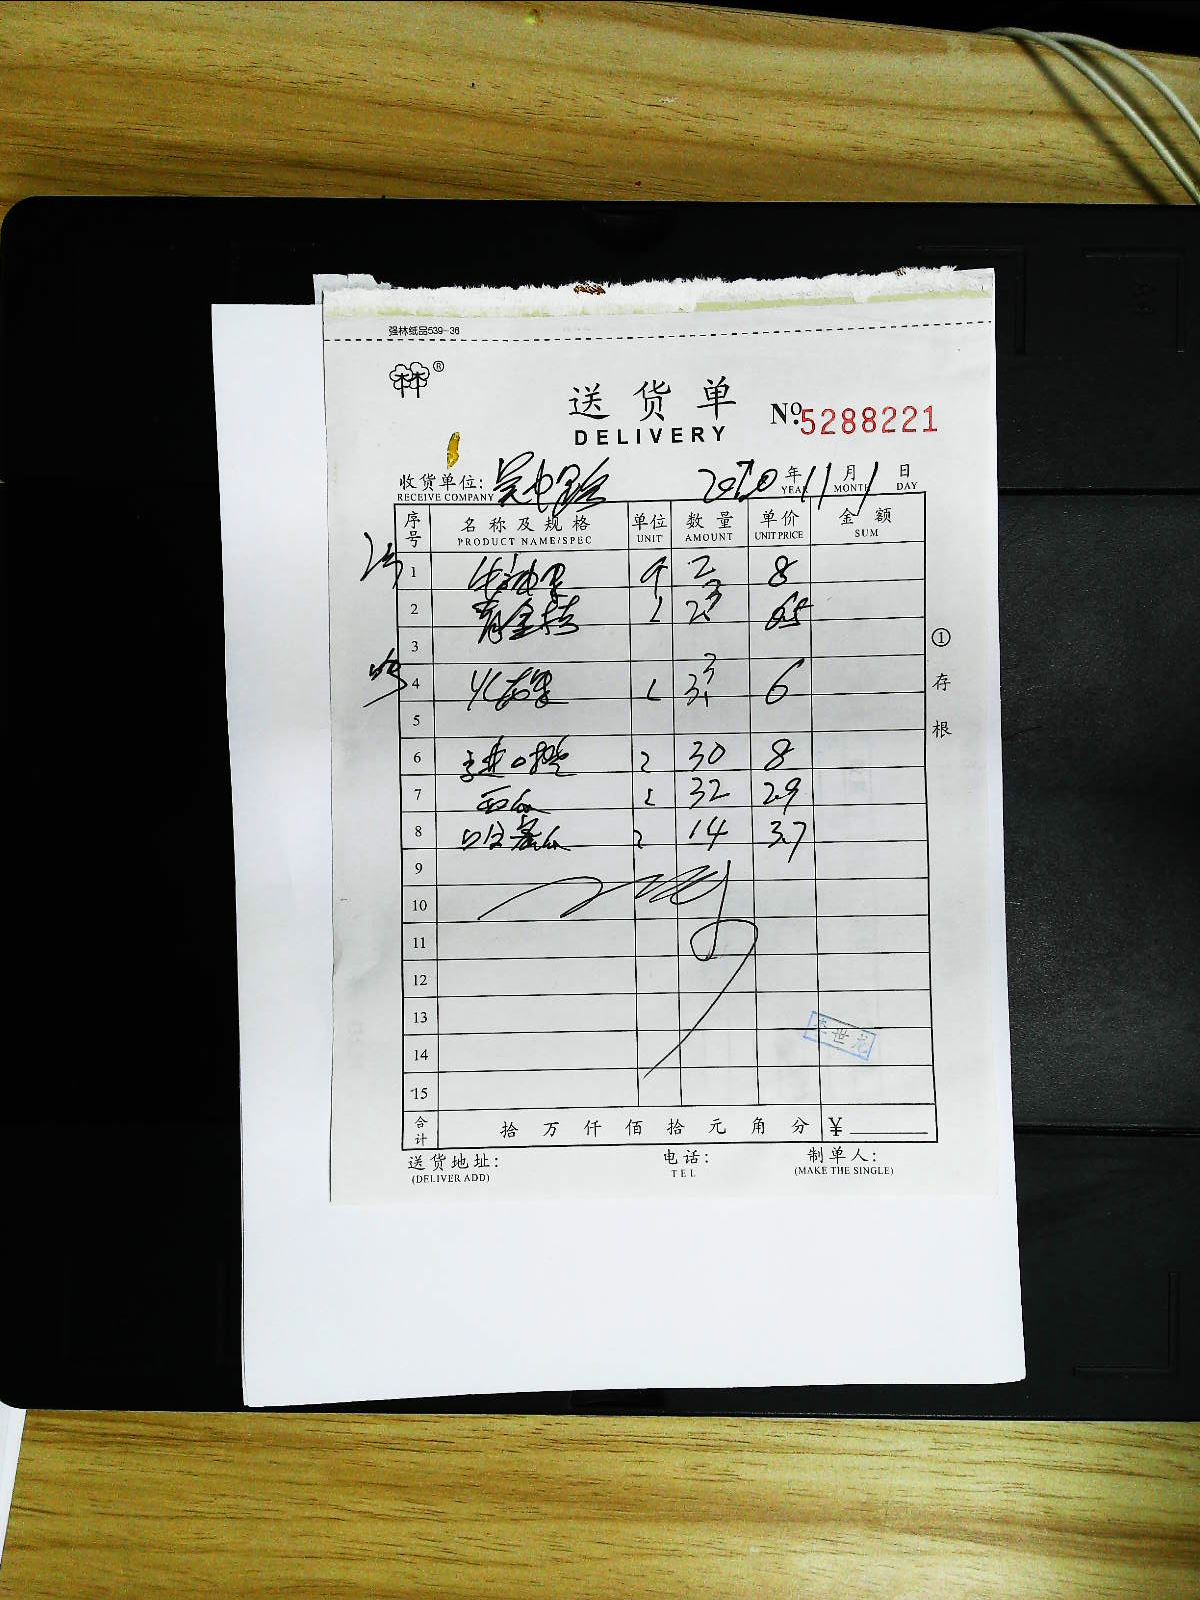 强林纸品539-36
林林®
送货单
DELIVERY
No.5288221
收货单位:
RECEIVE COMPANY
年 11 月 1 日
YEAR MONTH DAY
序号 名称及规格 单位 数量 单价 金额
PRODUCT NAME/SPEC UNIT AMOUNT UNIT PRICE SUM
1 2 8
2 青金桔 6.5
3
4 6
5
6 进口橙 30 8
7 西瓜 32 2.9
8 哈密瓜 14 3.7
9
10
11
12
13
14
15
合计 拾 万 仟 佰 拾 元 角 分 ¥
①存根
世龙
送货地址: 电话: 制单人:
(DELIVER ADD) TEL (MAKE THE SINGLE)